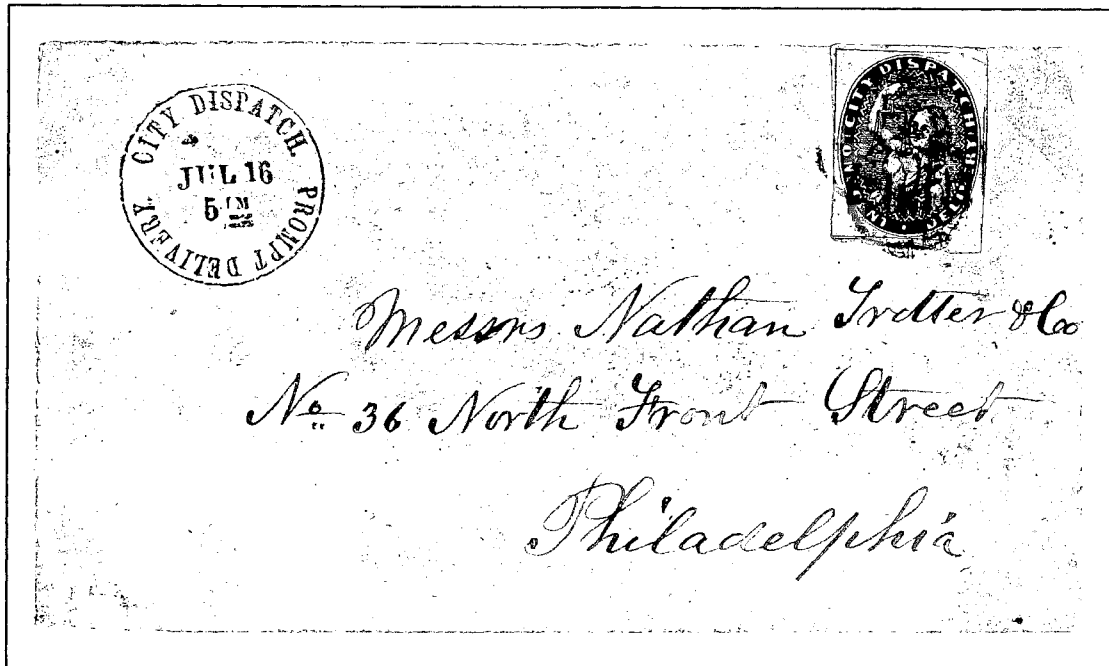 CITY DISPATCH. PROMPT DELIVERY.
JUL 16
5
CITY DISPATCH
Messrs Nathan Trotter & Co
No. 36 North Front Street
Philadelphia